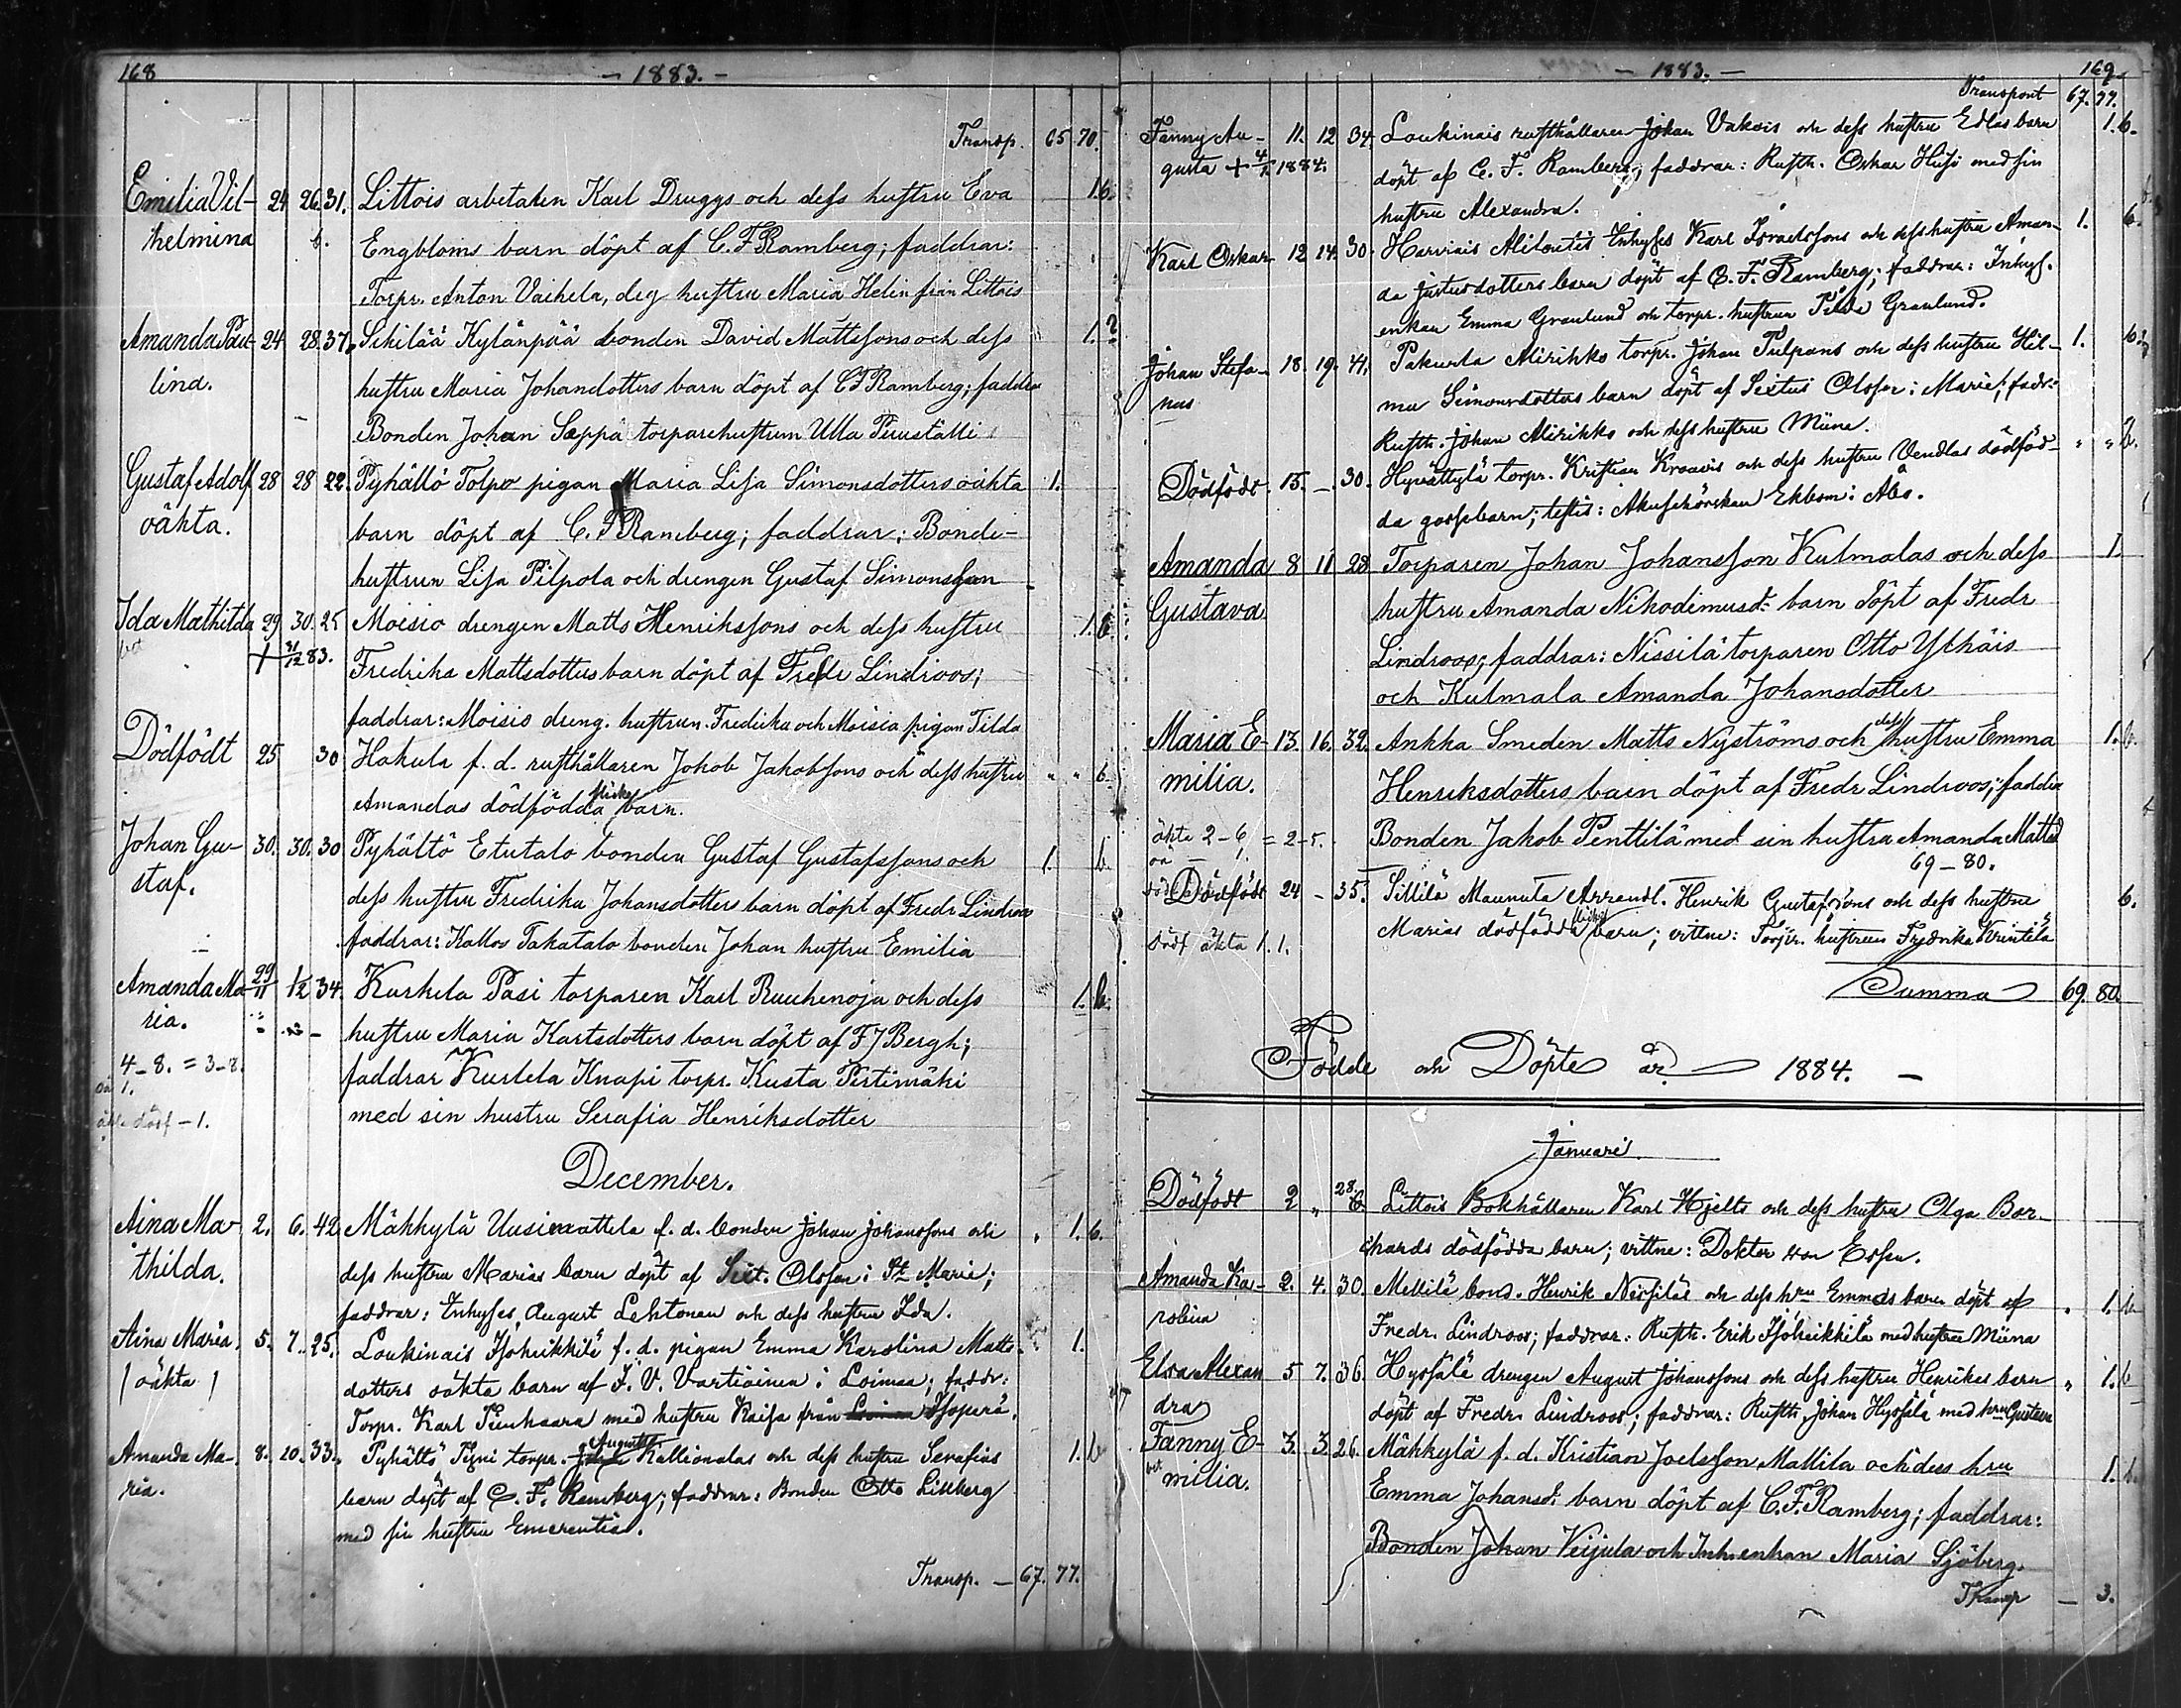 168
- 1883. -
Transp. 65 70.
Emilia Vil- 24 26. 31. Littois arbetaren Karl Druggs och dess hustru Eva 1. b.
helmina b. Engbloms barn döpt af C. F. Ramberg; faddrar:
Torpr. Anton Vaihela, deg hustru Maria Helin från Littois
Amanda Pau- 24 28. 37. Sihilää Kylänpää bonden David Mattssons och dess 1.
lina. hustru Maria Johandotters barn döpt af CF Ramberg; faddra
Bonden Johan Seppä torparehustrun Ulla
Gustaf Adolf 28 28 22. Pyhältö Tolpo pigan Maria Lisa Simonsdotters oäkta 1.
oäkta. barn döpt af C. F Ramberg; faddrar: Bonde-
hustrun Lisa Pilpola och drengen Gustaf Simonsson
Ida Mathilda 29 30. 25 Moisio drengen Matts Henrikssons och dess hustru 1. b
+ 31/12 83. Fredrika Mattsdotters barn döpt af Fredr Lindroos;
faddrar: Moisio dreng. hustrun Fredrika och Moisio pigan Tilda
Dödfödt 25 30 Hakula f. d. rusthållaren Jakob Jakobssons och dess hustru " " b.
flicke
Amandas dödfödda barn.
Johan Gu- 30. 30. 30 Pyhältö Etutalo bonden Gustaf Gustafssons och 1. b
staf. dess hustru Fredrika Johansdotters barn döpt af Fredr Lindroos
faddrar: Kallos Takatalo bonden Johan hustru Emilia
Amanda Ma- 29/11 1/12 34. Kurkela Pasi torparen Karl Ruuhenoja och dess 1. b.
ria. hustru Maria Karlsdotters barn döpt af F J Bergh;
4-8. = 3-8. faddrar Kurkela Knapi torpr. Kusta Pirtimäki
oä 1. med sin hustru Serafia Henriksdotter
äkta dödf - 1.
December.
Aina Ma- 2. 6. 42. Mähkylä Uusimattela f. d. bonden Johan Johanssons och 1. b.
thilda. dess hustru Marias barn döpt af Sext. Olsson i St Marie;
faddrar: Inhyses August Lehtonen och dess hustru Ida.
Aina Maria, 5. 7. 25. Loukinais Isoheikkilä f. d. pigan Emma Karolina Matts- 1.
/ oäkta / dotters oäkta barn af J. V. Vartiainen i Loimaa; faddr:
Torpr. Karl Pienhaara med hustru Kaisa från Loimaa Isoperä.
Augusts
Amanda Ma- 8. 10. 33. Pyhältö Pyni torpr. Kallionalas och dess hustru Serafias 1. b
ria. barn döpt af C. F. Ramberg; faddrar: Bonden Otto Lillberg
med sin hustru Emerentia.
Transp. - 67. 77.
- 1883. -
169
Transport 67. 77.
Fanny Au- 11. 12 34. Loukinais rusthållaren Johan Vakois och dess hustru Edlas barn 1. b.
gusta + 4/1 1884. döpt af C. F. Ramberg; faddrar: Rusth. Oskar Husö med sin
hustru Alexandra.
Karl Oskar 12 14. 30. Harvais Alitoutis Inhyses Karl Israelssons och dess hustru Aman- 1. b.
da Justusdotters barn döpt af C. F. Ramberg; faddrar: Inhys.
enkan Emma Granlund och torpr. hustrun Pilda Granlund.
Johan Stefa- 18. 19. 41. Pakurla Alirikko torpr. Johan Pulpans och dess hustru Hil- 1. b.
nus ma Simonsdotters barn döpt af Sextus Olsson i Marie; fadr:
Rusth. Johan Alirikko och dess hustru Miina.
Dödfödt. 15. - 30. Hyvättylä torpr. Kristian Kraavis och dess hustru Vendlas dödföd- " " b.
da gossebarn; testis: Akuschörskan Ekbom i Åbo.
Amanda 8 11 28 Torparen Johan Johansson Kulmalas och dess 1.
Gustava hustru Amanda Nikodimusd: barn döpt af Fredr
Lindroos; faddrar: Nissilä torparen Otto Ylhäis
och Kulmala Amanda Johansdotter
dess
Maria E- 13. 16. 32. Ankka Smeden Matts Nyströms och hustru Emma 1. b.
milia. Henriksdotters barn döpt af Fredr Lindroos; faddra
äkta 2-6 = 2-5. Bonden Jakob Penttilä med sin hustru Amanda Mattsd
oä - 1. 69-80.
Dödfödt 24 - 35. Sillilä Maunula Arrendl. Henrik Gustafssons och dess hustru b.
dödf äkta 1. 1. Marias dödfödda barn; vittne: Torpr. hustrun Fredrika Vrintilä
Summa 69. 80.
Födde och Döpte år 1884. -
Januari
Dödfödt 2 " 28. Littois Bokhållaren Karl Hjelts och dess hustru Olga Bor-
chards dödfödda barn; vittne: Doktor von Essen.
Amanda Ka- 2. 4. 30. Mellilä bond. Henrik Nissiläs och dess hru Emmas barn döpt af " 1. b.
rolina Fredr. Lindroos; faddrar: Rusth. Erik Isoheikkilä med hustru Miina
Elsa Alexan 5 7. 36. Hyssälä drengen August Johanssons och dess hustru Henrikas barn " 1. b
dra döpt af Fredr. Lindroos; faddrar: Rusth. Johan Hyssälä med hru Gustava
Fanny E- 3. 3. 26. Mähkylä f. d. Kristian Joelsson Mallila och dess hru 1. b.
milia. Emma Johansd: barn döpt af C. F. Ramberg; faddrar:
Bonden Johan Veijula och Inh. enkan Maria Sjöberg.
Transp - 3.